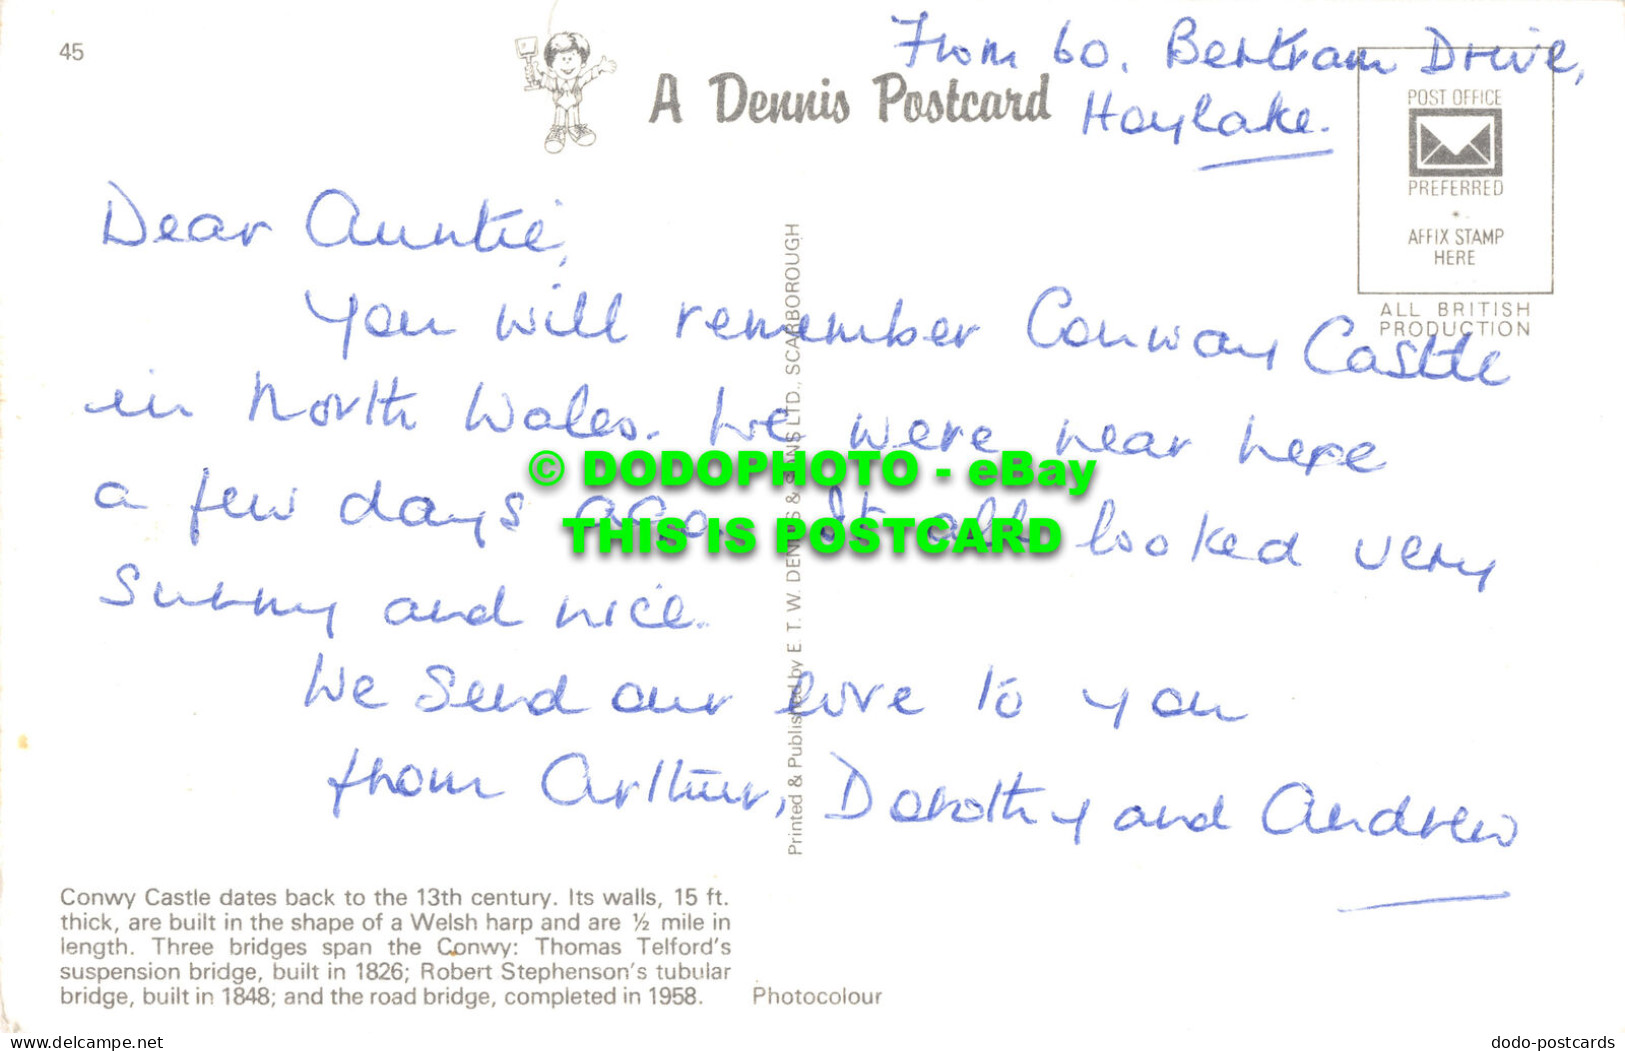 45
From 60, Bertram Drive,
A Dennis Postcard
Hoylake.
POST OFFICE
PREFERRED
AFFIX STAMP
HERE
ALL BRITISH
PRODUCTION
Dear Auntie,
You will remember Conway Castle
in North Wales. We were near here
a few days ago. It all looked very
sunny and nice.
We send our love to you
from Arthur, Dorothy and Andrew
© DODOPHOTO - eBay
THIS IS POSTCARD
Printed & Published by E. T. W. DENNIS & SONS LTD., SCARBOROUGH
Conwy Castle dates back to the 13th century. Its walls, 15 ft.
thick, are built in the shape of a Welsh harp and are ½ mile in
length. Three bridges span the Conwy: Thomas Telford's
suspension bridge, built in 1826; Robert Stephenson's tubular
bridge, built in 1848; and the road bridge, completed in 1958.
Photocolour
www.delcampe.net
dodo-postcards